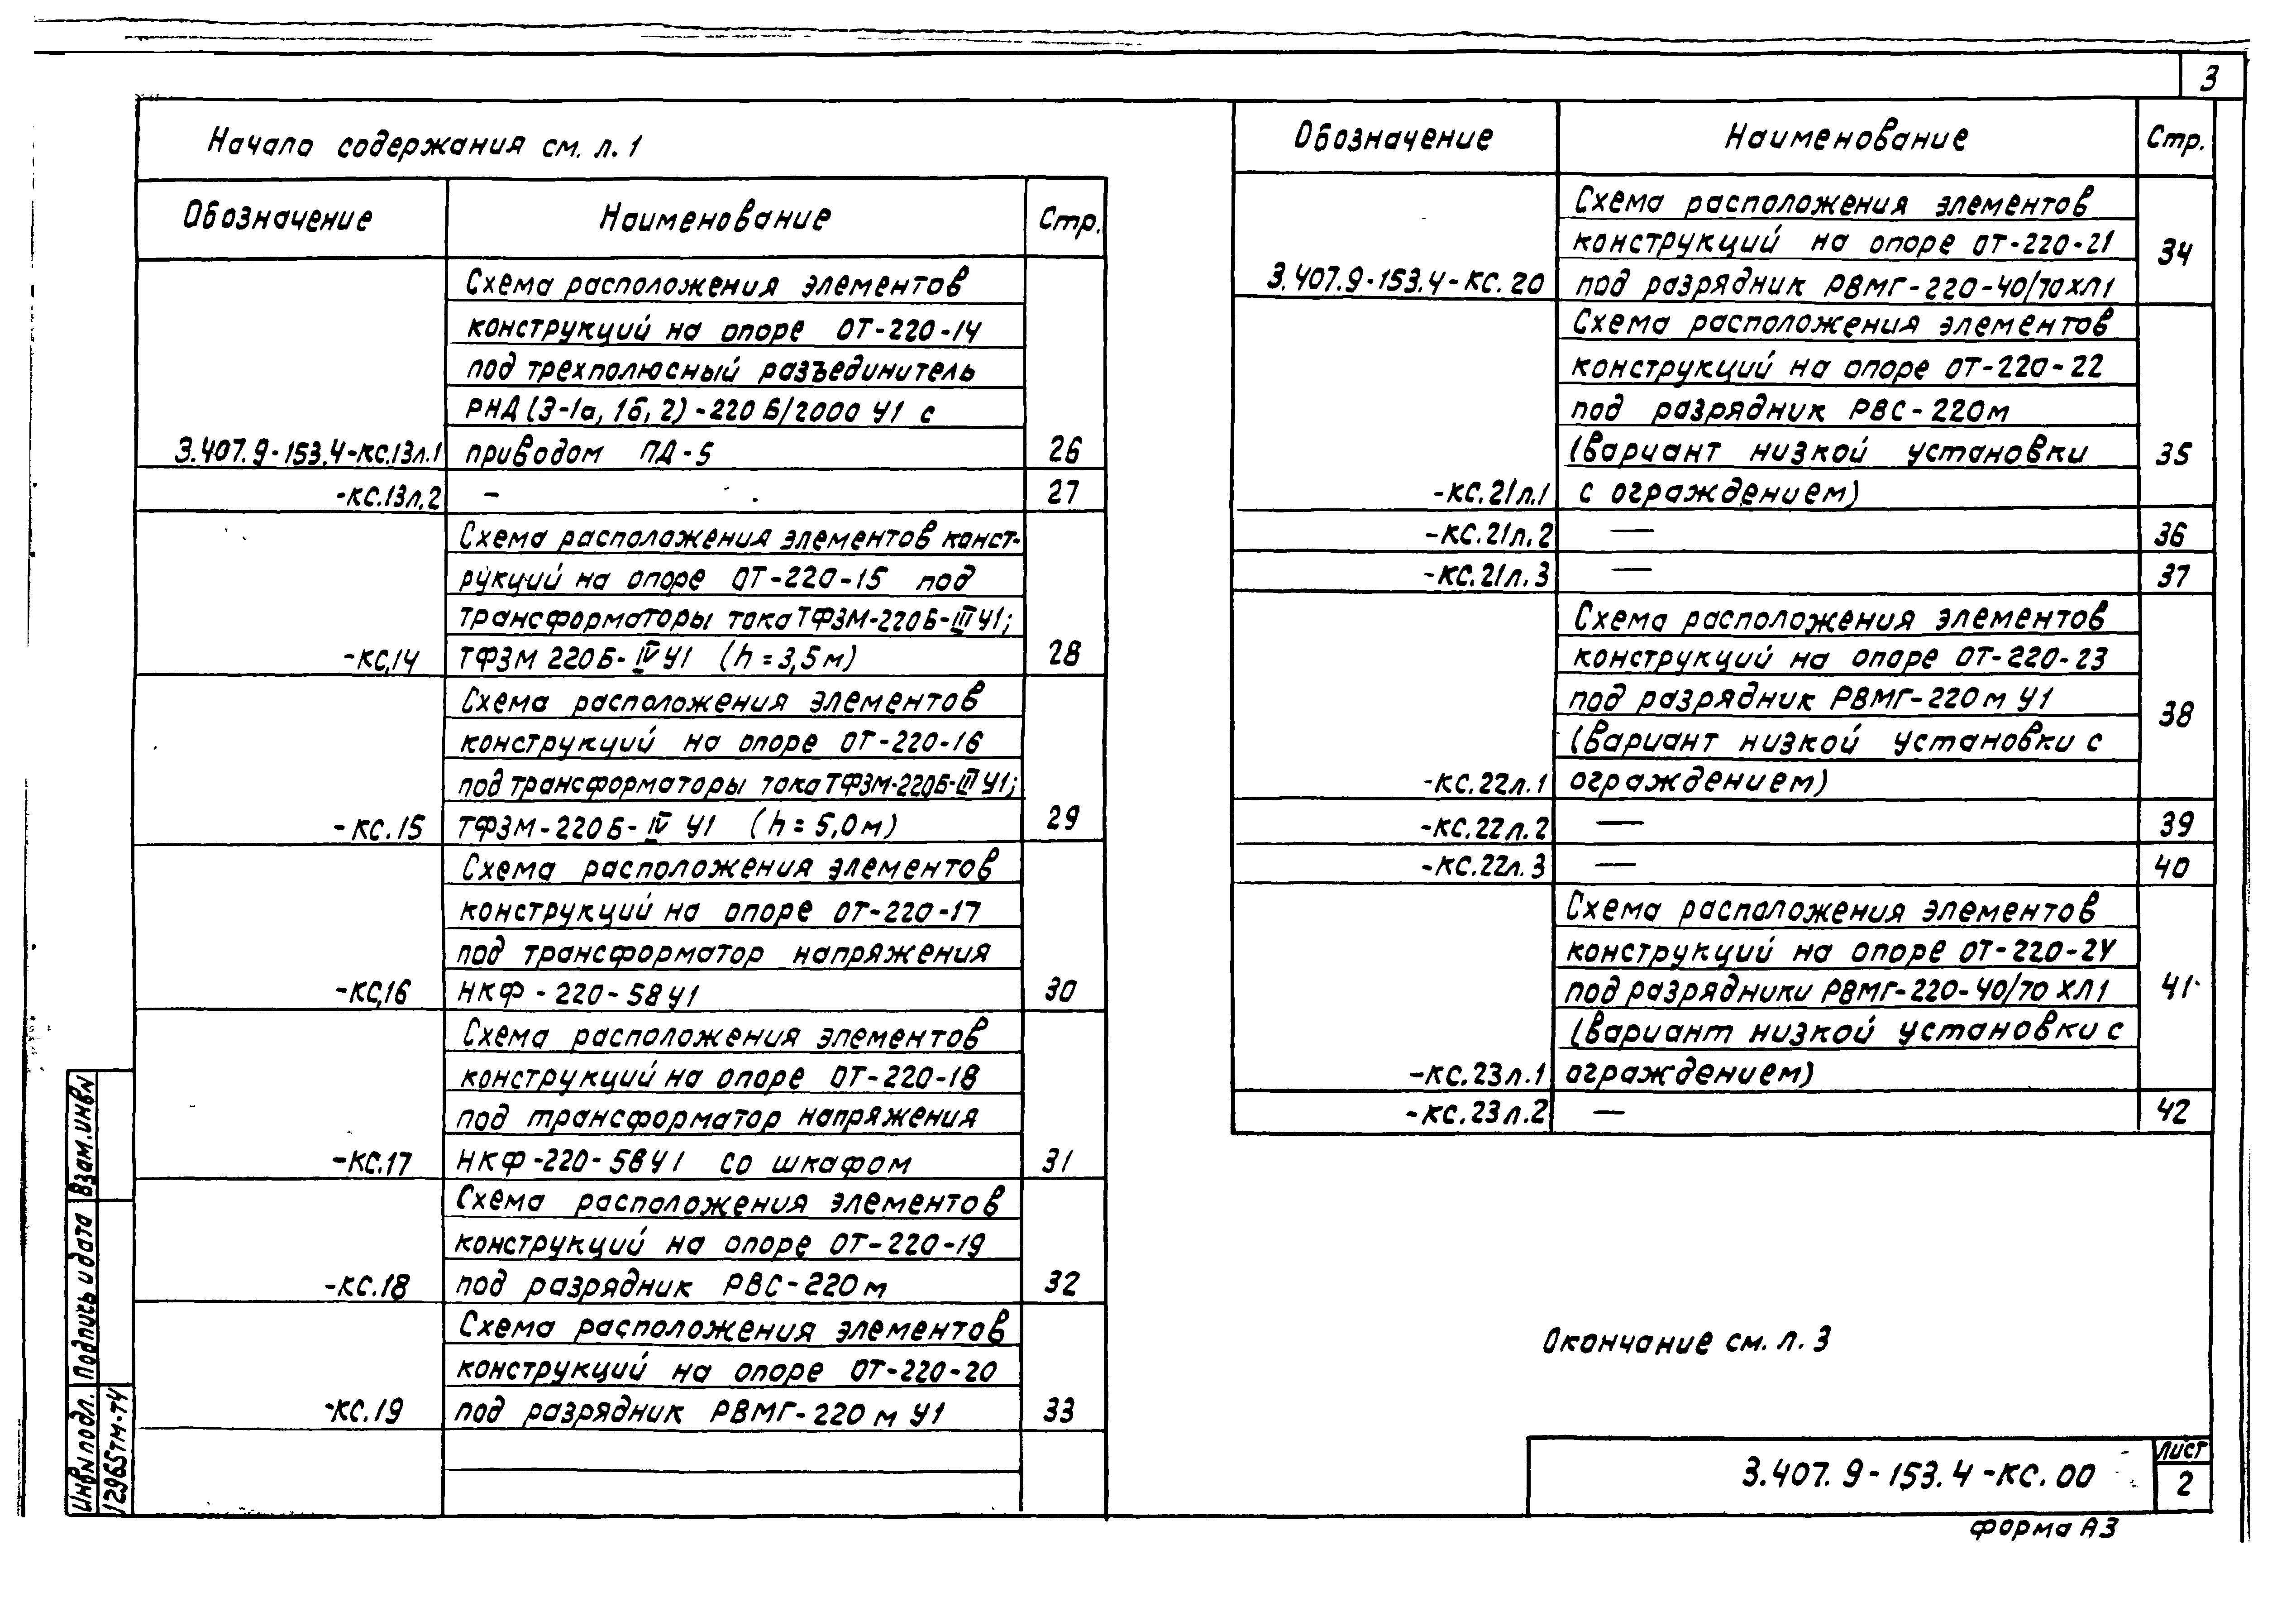 3
Начало содержания см. л. 1
Обозначение Наименование Стр.
Схема расположения элементов
конструкций на опоре ОТ-220-14
под трехполюсный разъединитель
РНД (З-1а, 1б, 2)-220 Б/2000 У1 с
3.407.9-153.4-КС.13л.1 приводом ПД-5 26
-КС.13л.2 — 27
Схема расположения элементов конст-
рукций на опоре ОТ-220-15 под
трансформаторы тока ТФЗМ-220Б-III У1;
-КС.14 ТФЗМ 220Б-IV У1 (h=3,5м) 28
Схема расположения элементов
конструкций на опоре ОТ-220-16
под трансформаторы тока ТФЗМ-220Б-III У1;
-КС.15 ТФЗМ-220Б-IV У1 (h=5,0м) 29
Схема расположения элементов
конструкций на опоре ОТ-220-17
под трансформатор напряжения
-КС.16 НКФ-220-58У1 30
Схема расположения элементов
конструкций на опоре ОТ-220-18
под трансформатор напряжения
-КС.17 НКФ-220-58У1 со шкафом 31
Схема расположения элементов
конструкций на опоре ОТ-220-19
-КС.18 под разрядник РВС-220м 32
Схема расположения элементов
конструкций на опоре ОТ-220-20
-КС.19 под разрядник РВМГ-220м У1 33
Обозначение Наименование Стр.
Схема расположения элементов
конструкций на опоре ОТ-220-21 34
3.407.9-153.4-КС.20 под разрядник РВМГ-220-40/70ХЛ1
Схема расположения элементов
конструкций на опоре ОТ-220-22
под разрядник РВС-220м
(вариант низкой установки 35
-КС.21л.1 с ограждением)
-КС.21л.2 — 36
-КС.21л.3 — 37
Схема расположения элементов
конструкций на опоре ОТ-220-23
под разрядник РВМГ-220м У1 38
(вариант низкой установки с
-КС.22л.1 ограждением)
-КС.22л.2 — 39
-КС.22л.3 — 40
Схема расположения элементов
конструкций на опоре ОТ-220-24
под разрядники РВМГ-220-40/70 ХЛ1 41
(вариант низкой установки с
-КС.23л.1 ограждением)
-КС.23л.2 — 42
Окончание см. л. 3
3.407.9-153.4-КС.00
Лист
2
форма А3
Взам.инв№
Подпись и дата
Инв№подл.
12965тм-т4